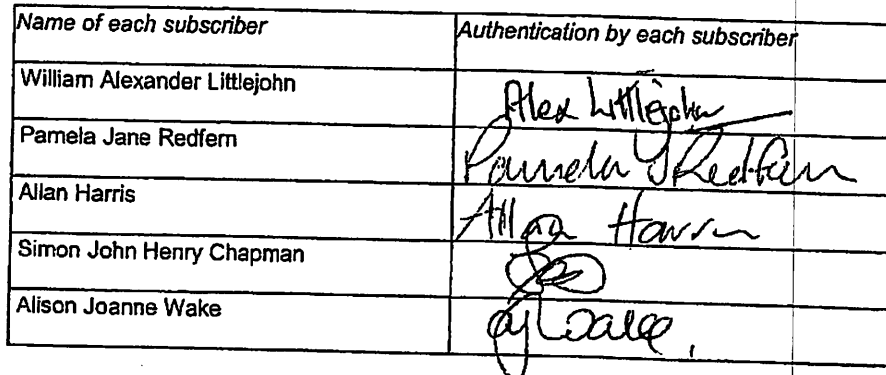 Name of each subscriber Authentication by each subscriber
William Alexander Littlejohn Alex Littlejohn
Pamela Jane Redfern Pamela J Redfern
Allan Harris Allan Harris
Simon John Henry Chapman
Alison Joanne Wake aj Wake